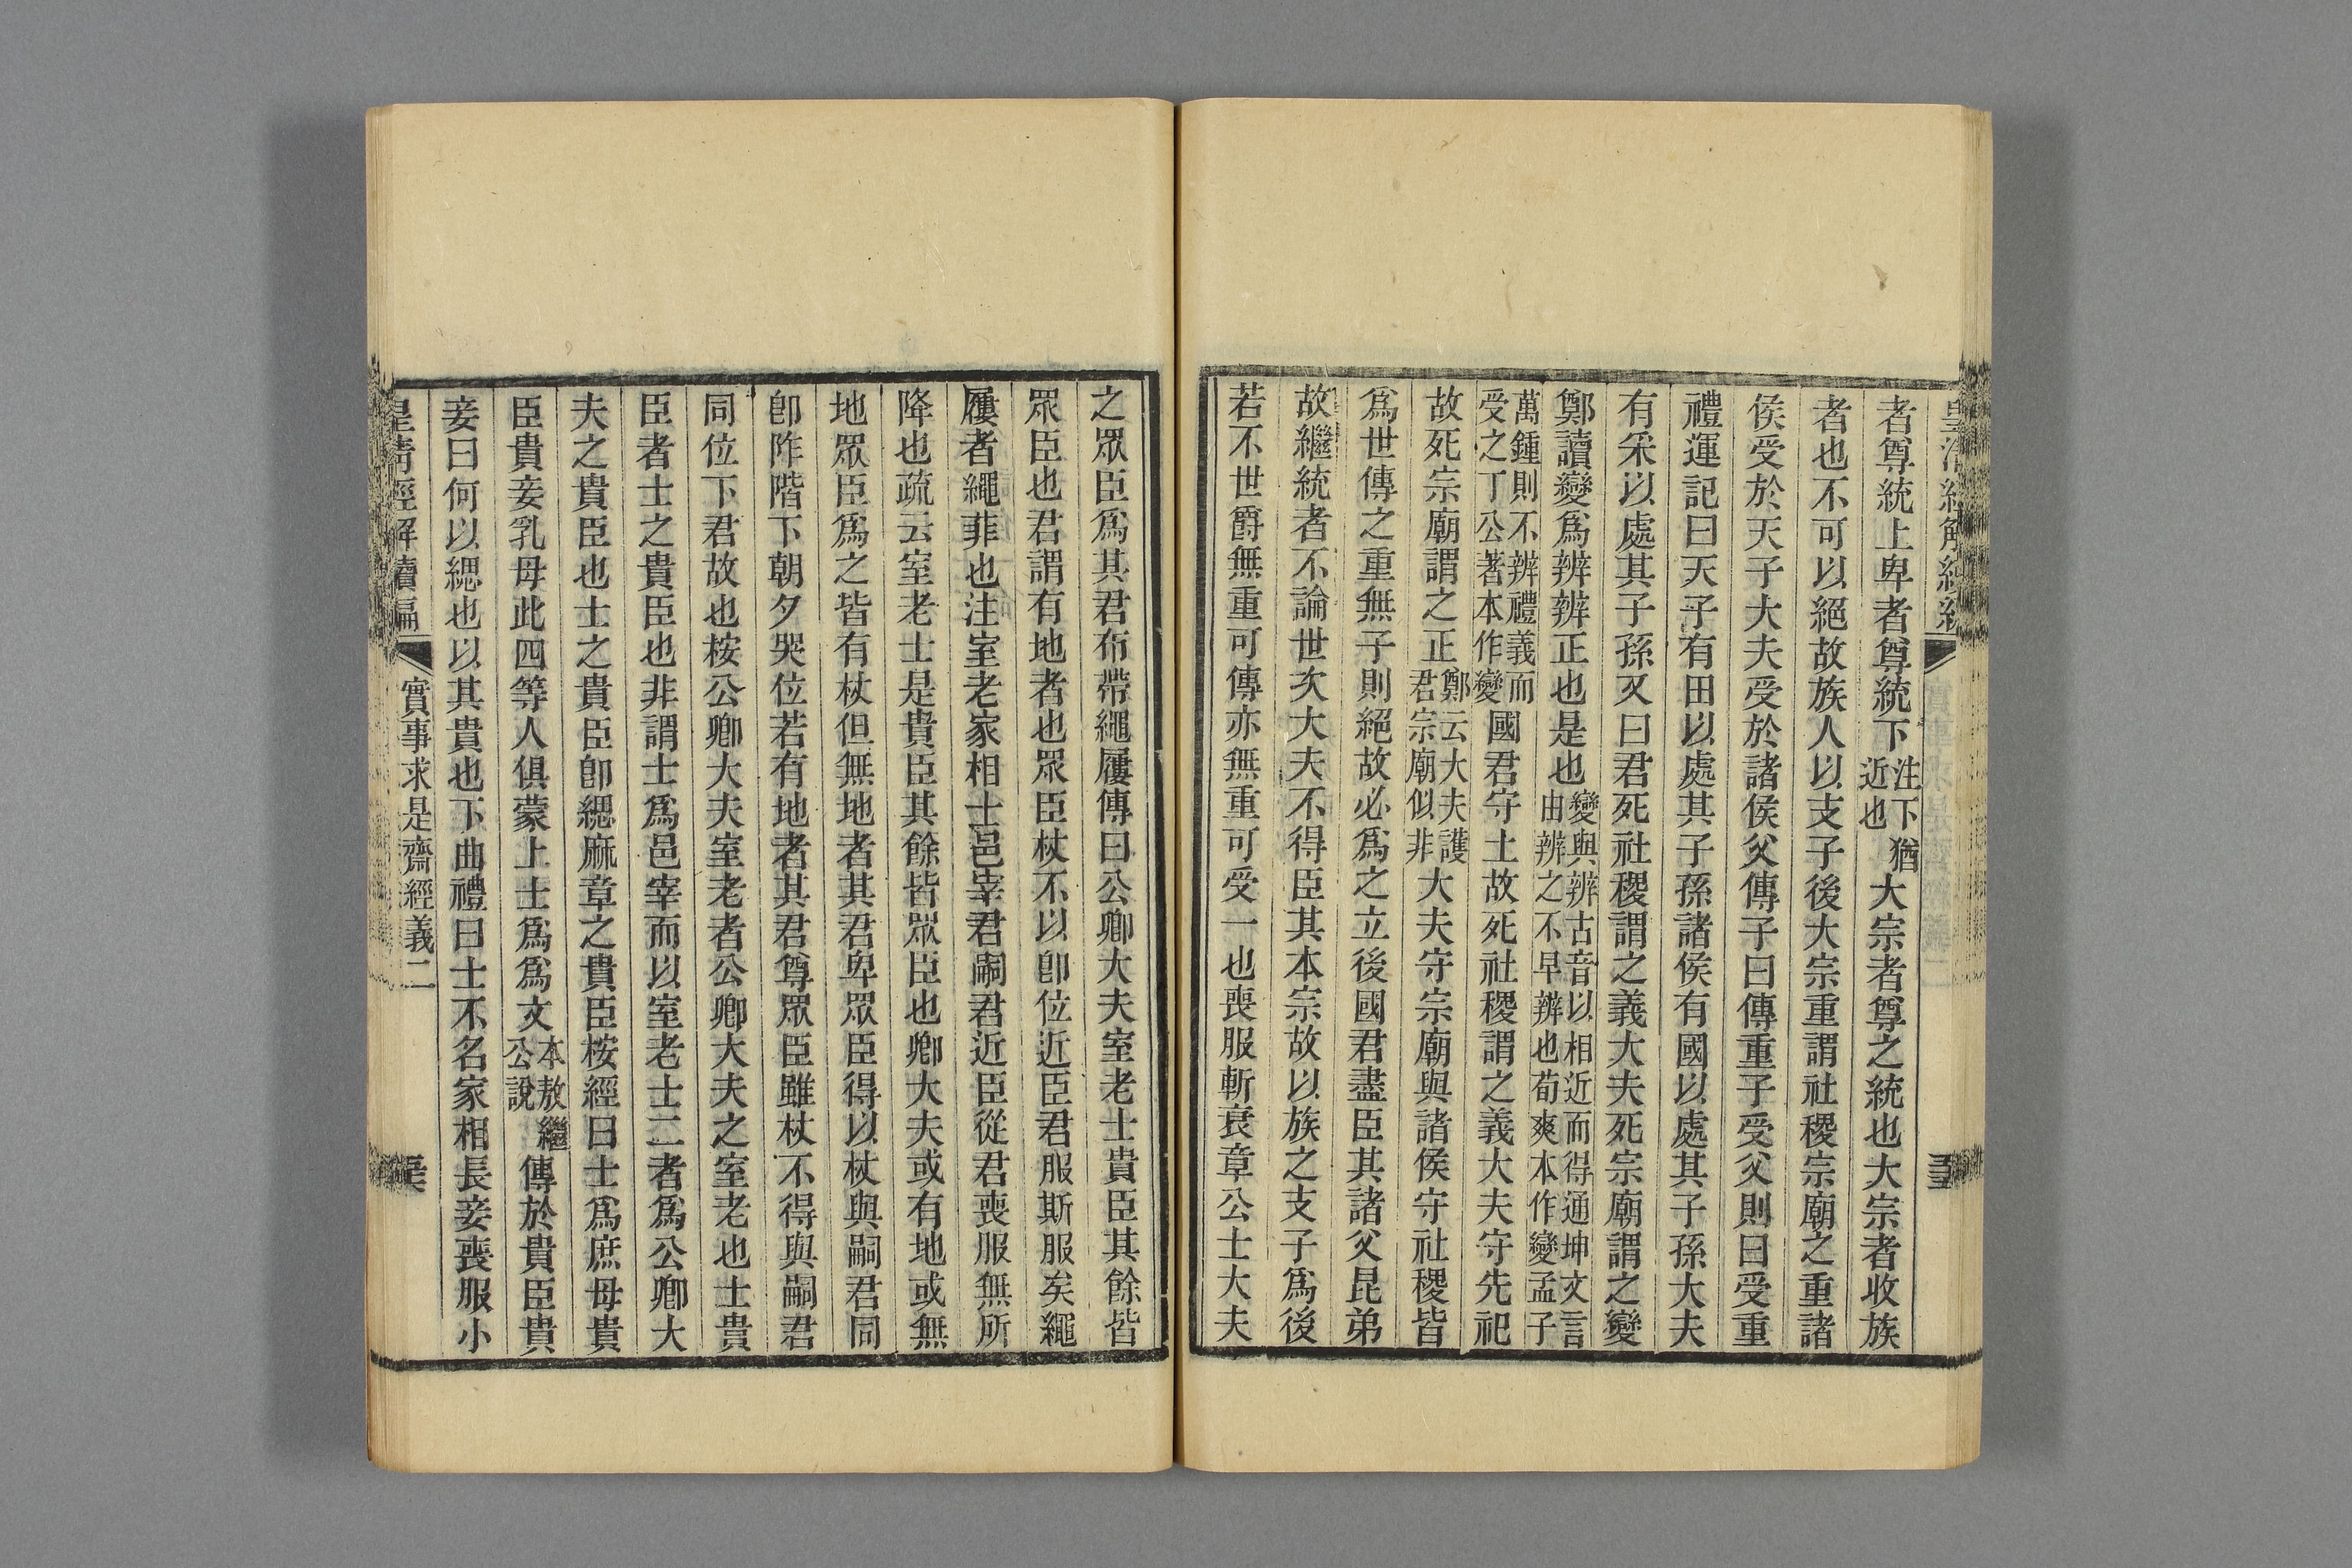 者尊統上卑者尊統下注下猶近也大宗者尊之統也大宗者收族
者也不可以絕故族人以支子後大宗重謂社稷宗廟之重諸
侯受於天子大夫受於諸侯父傳子曰傳重子受父則曰受重
禮運記曰天子有田以處其子孫諸侯有國以處其子孫大夫
有采以處其子孫又曰君死社稷謂之義大夫死宗廟謂之變
鄭讀變爲辨辨正也是也變與辨古音以相近而得通坤文言由辨之不早辨也荀爽本作變孟子
萬鍾則不辨禮義而受之丁公著本作變國君守土故死社稷謂之義大夫守先祀
故死宗廟謂之正鄭云大夫護君宗廟似非大夫守宗廟與諸侯守社稷皆
爲世傳之重無子則絕故必爲之立後國君盡臣其諸父昆弟
故繼統者不論世次大夫不得臣其本宗故以族之支子爲後
若不世爵無重可傳亦無重可受一也喪服斬衰章公士大夫
之眾臣爲其君布帶繩屨傳曰公卿大夫室老士貴臣其餘皆
眾臣也君謂有地者也眾臣杖不以卽位近臣君服斯服矣繩
屨者繩菲也注室老家相士邑宰君嗣君近臣從君喪服無所
降也疏云室老士是貴臣其餘皆眾臣也卿大夫或有地或無
地眾臣爲之皆有杖但無地者其君卑眾臣得以杖與嗣君同
卽阼階下朝夕哭位若有地者其君尊眾臣雖杖不得與嗣君
同位下君故也桉公卿大夫室老者公卿大夫之室老也士貴
臣者士之貴臣也非謂士爲邑宰而以室老士二者爲公卿大
夫之貴臣也士之貴臣卽緦麻章之貴臣桉經曰士爲庶母貴
臣貴妾乳母此四等人俱蒙上士爲爲文本敖繼公說傳於貴臣貴
妾曰何以緦也以其貴也下曲禮曰士不名家相長妾喪服小
皇清經解續編
實事求是齋經義二